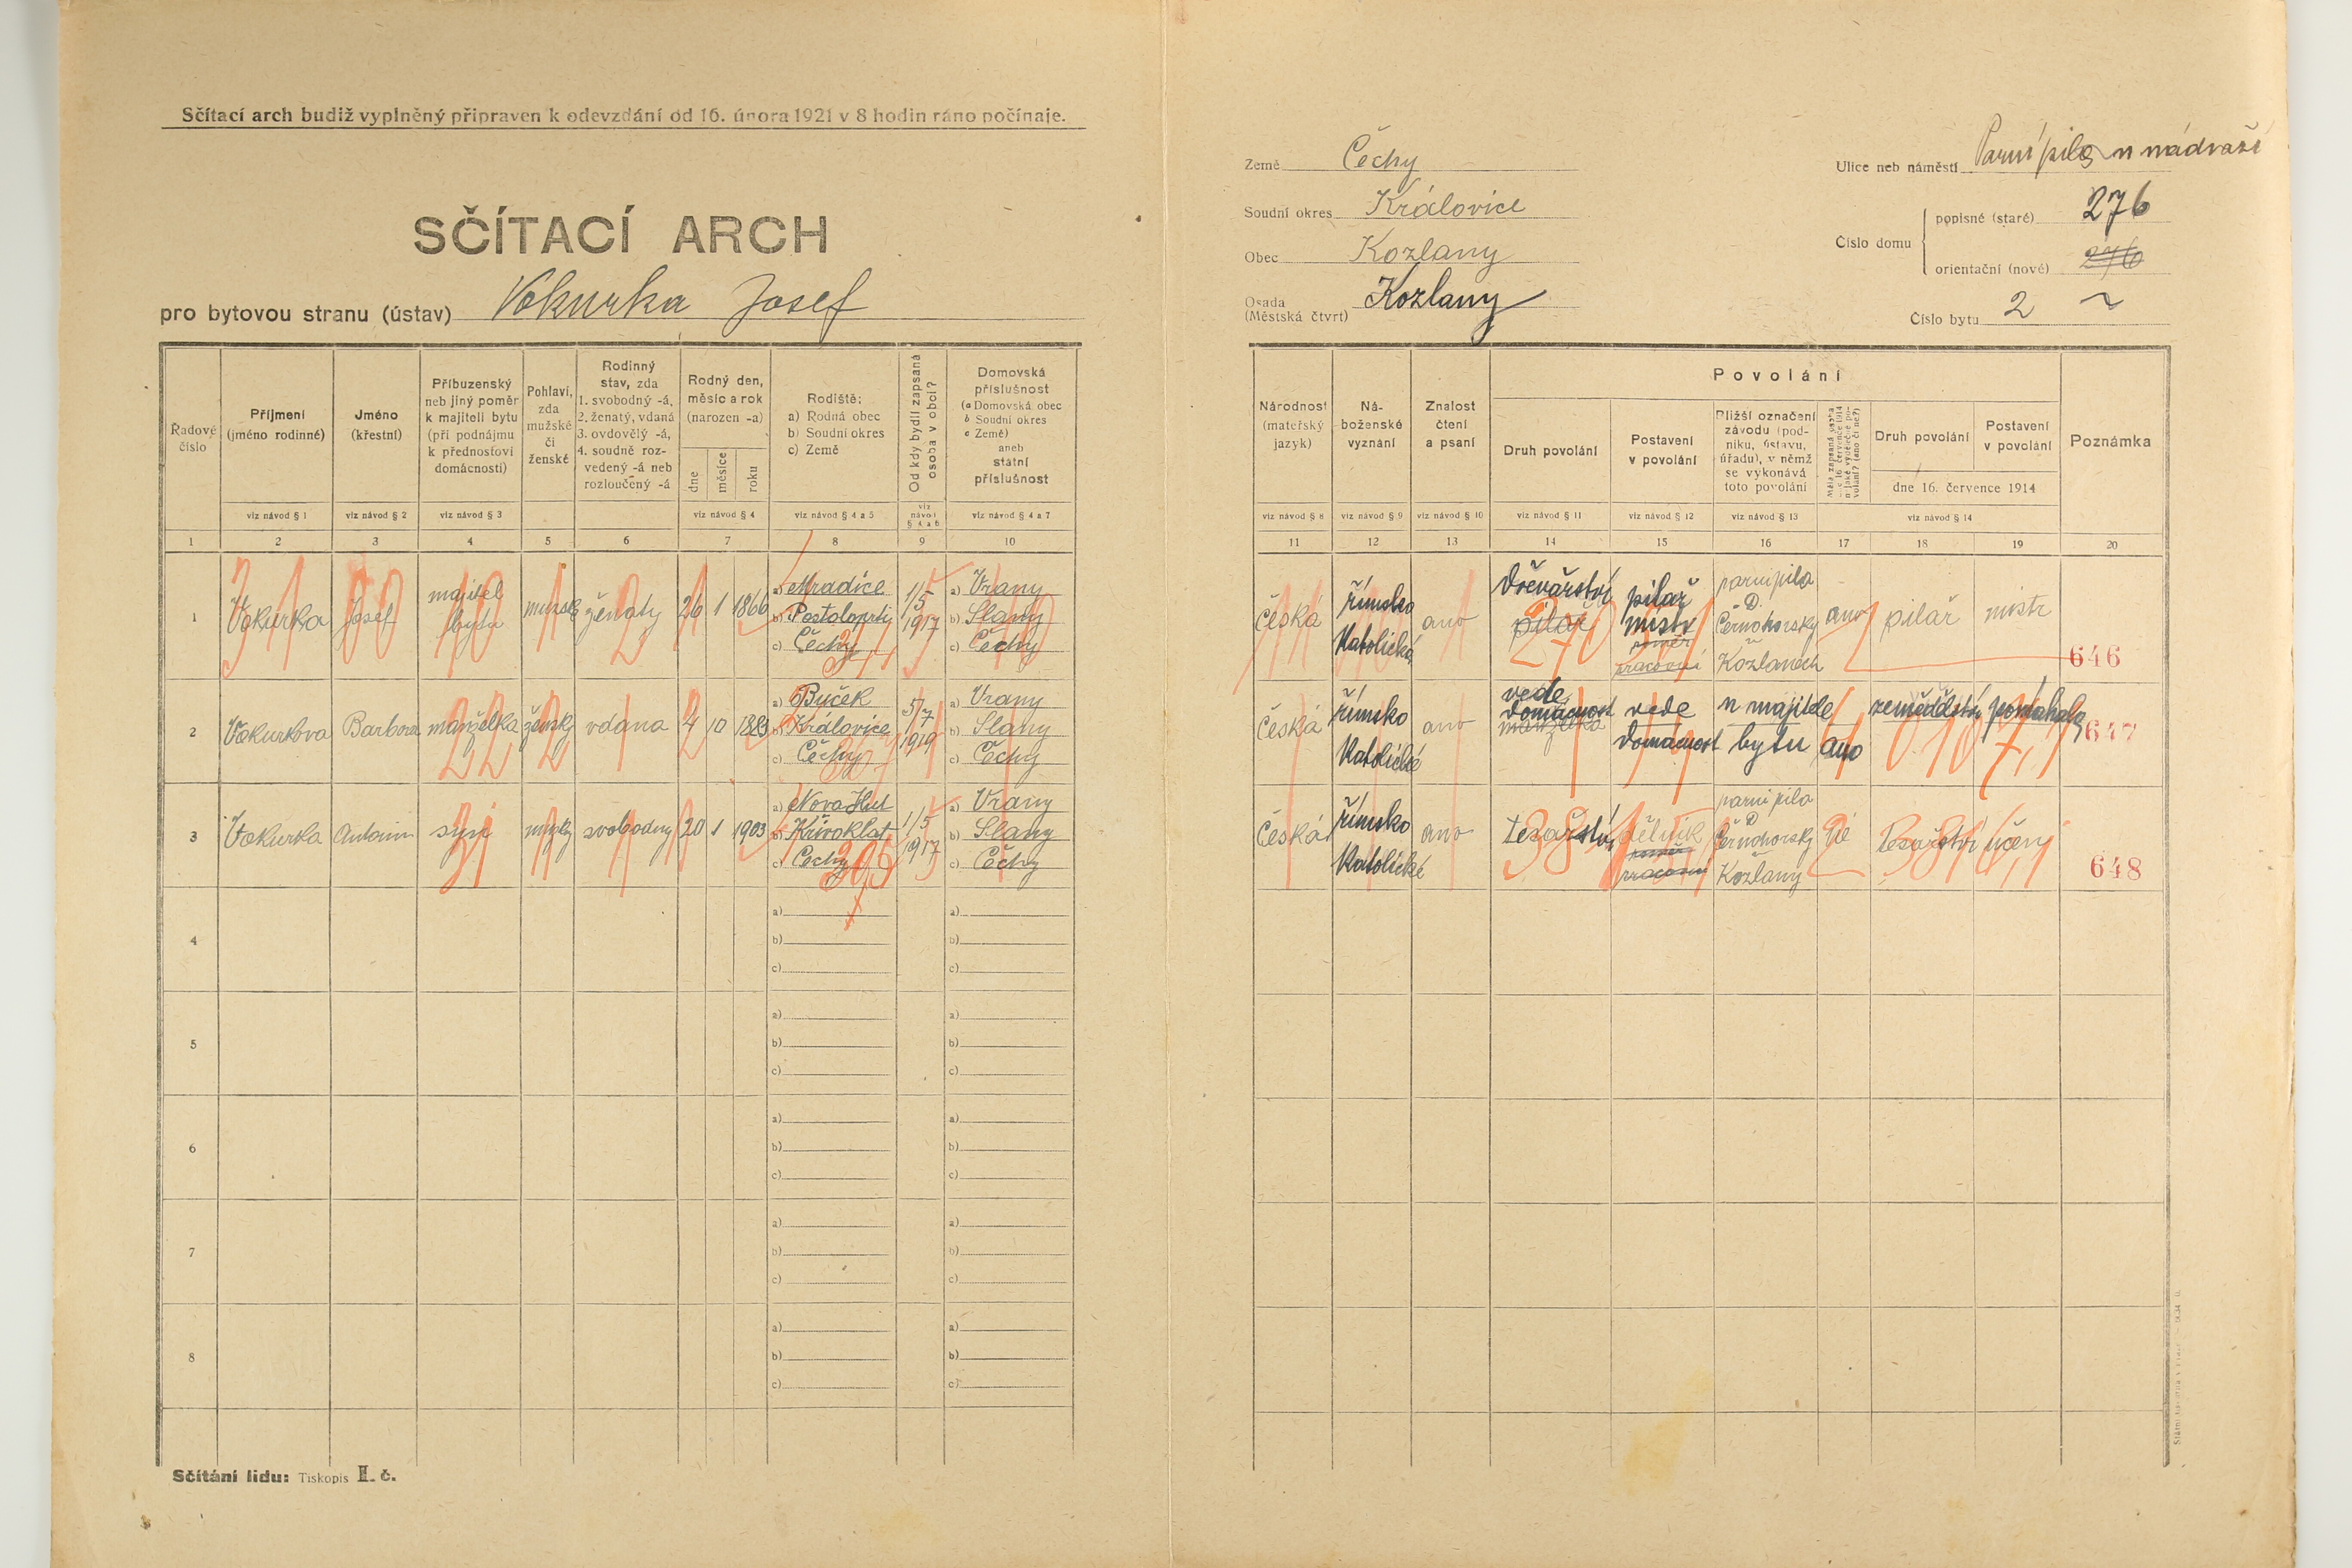 Sčítací arch budiž vyplněný připraven k odevzdání od 16. února 1921 v 8 hodin ráno počínaje.
SČÍTACÍ ARCH
pro bytovou stranu (ústav) Vokurka Josef
Země Čechy
Soudní okres Královice
Obec Kozlany
Osada (Městská čtvrť) Kozlany
Ulice neb náměstí Parní pila u nádraží
Číslo domu
popisné (staré) 276
orientační (nové) 276
Číslo bytu 2
Řadové číslo
Příjmení (jméno rodinné)
Jméno (křestní)
Příbuzenský neb jiný poměr k majiteli bytu (při podnájmu k přednostovi domácnosti)
Pohlaví, zda mužské či ženské
Rodinný stav, zda 1. svobodný -á, 2. ženatý, vdaná 3. ovdovělý -á, 4. soudně rozvedený -á neb rozloučený -á
Rodný den, měsíc a rok (narozen -a)
dne měsíce roku
Rodiště: a) Rodná obec b) Soudní okres c) Země
Od kdy bydlí zapsaná osoba v obci?
Domovská příslušnost (a Domovská obec b Soudní okres c Země) aneb státní příslušnost
viz návod § 1 viz návod § 2 viz návod § 3 viz návod § 4 viz návod § 4 a 5 viz návod § 4 a 6 viz návod § 4 a 7
1 2 3 4 5 6 7 8 9 10
Národnost (mateřský jazyk)
Náboženské vyznání
Znalost čtení a psaní
Povolání
Druh povolání
Postavení v povolání
Bližší označení závodu (podniku, ústavu, úřadu), v němž se vykonává toto povolání
Měla zapsaná osoba 16. července 1914 nějaké výdělečné povolání? (ano či ne?)
Druh povolání
Postavení v povolání
dne 16. července 1914
Poznámka
viz návod § 8 viz návod § 9 viz návod § 10 viz návod § 11 viz návod § 12 viz návod § 13 viz návod § 14
11 12 13 14 15 16 17 18 19 20
1 Vokurka Josef majitel bytu mužské ženatý 26 1 1866
a) Mradice
b) Postoloprty
c) Čechy
1/5 1917
a) Vrany
b) Slany
c) Čechy
Česká římsko Katolické ano
pilař
pilař mistr
parni pila
Černohorsky
Kozlanech
ano pilař mistr
646
2 Vokurkova Barbora manželka žensky vdana 4 10 1883
a) Buček
b) Královice
c) Čechy
5/7 1919
a) Vrany
b) Slany
c) Čechy
Česká římsko Katolické ano
vede domácnost
manželka
vede domácnost
u majitele bytu
ano zemědělství pomáhala
647
3 Vokurka Antonin syn mužsky svobodny 20 1 1903
a) Nova Huť
b) Křivoklat
c) Čechy
1/5 1917
a) Vrany
b) Slany
c) Čechy
Česká římsko Katolické ano
tesařství
dělník
parni pila
Černohorsky
Kozlany
Tesařství učen
648
4 a) b) c) a) b) c)
5 a) b) c) a) b) c)
6 a) b) c) a) b) c)
7 a) b) c) a) b) c)
8 a) b) c) a) b) c)
Sčítání lidu: Tiskopis II. č.